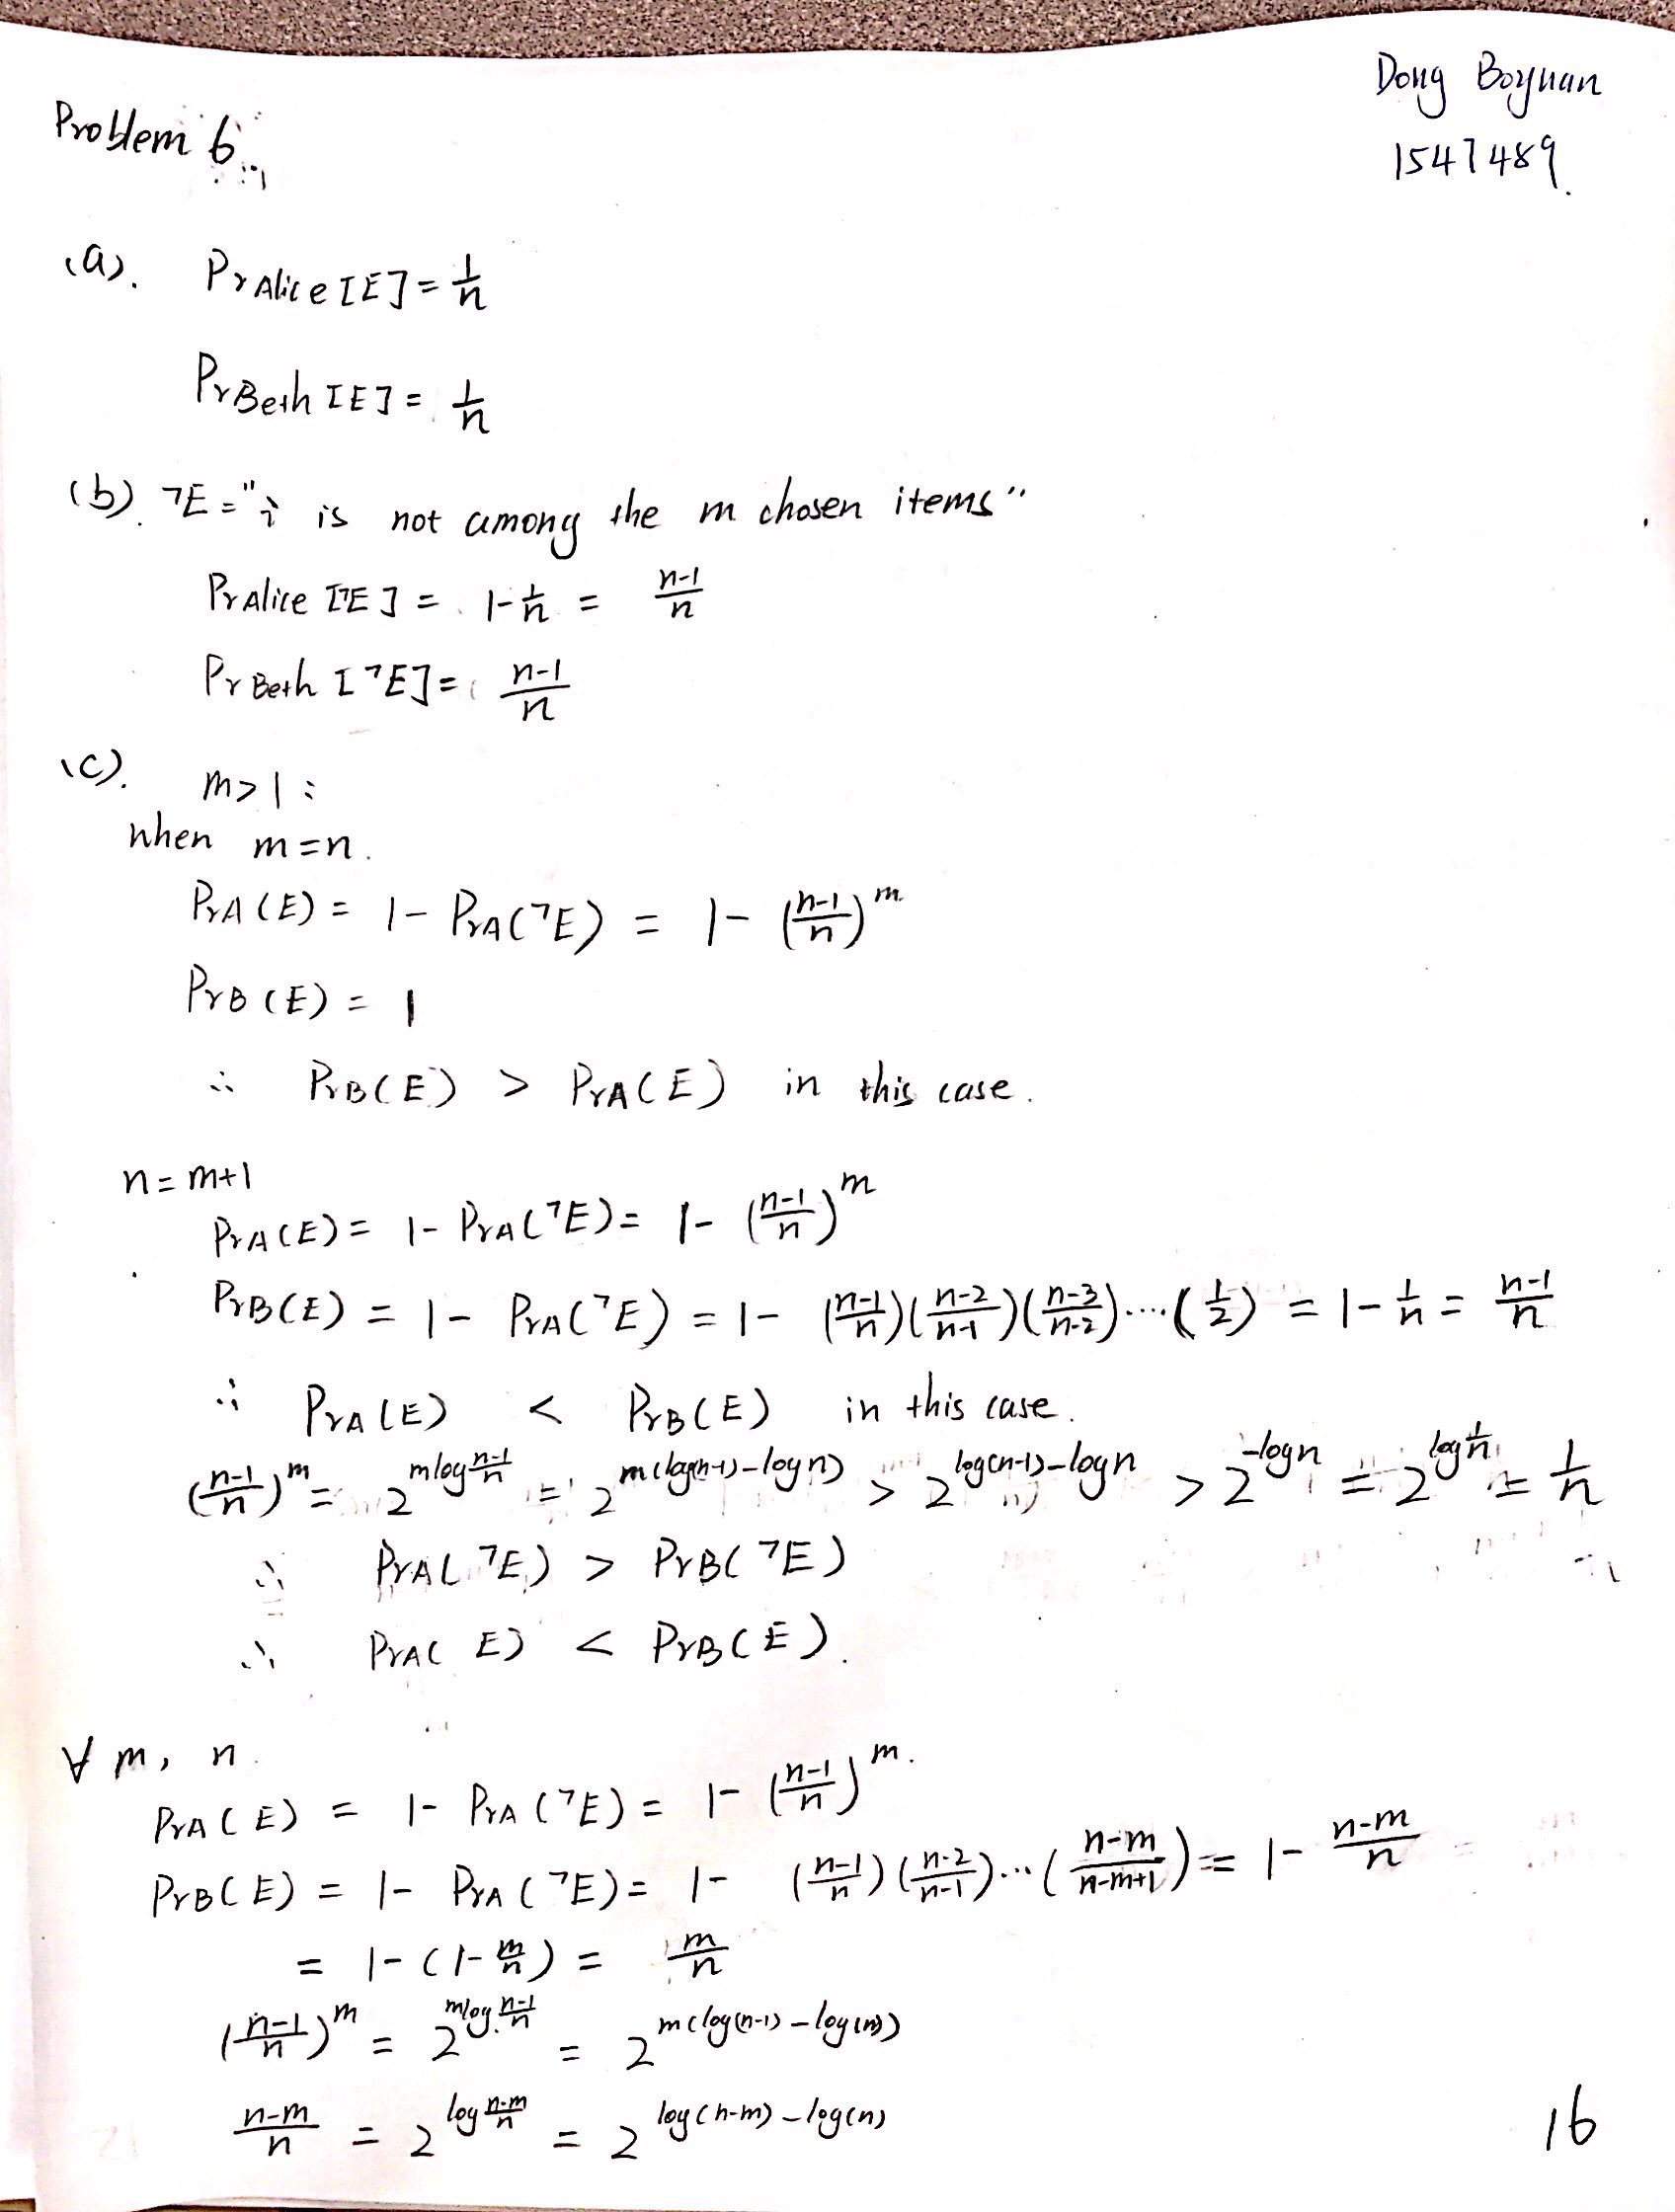 Dong Boyuan
1547489.
Problem 6.
(a). Pr Alice [E] = 1/n
Pr Beth [E] = 1/n
(b). ¬E = "i is not among the m chosen items"
Pr Alice [¬E] = 1 - 1/n = (n-1)/n
Pr Beth [¬E] = (n-1)/n
(c). m>1:
when m=n.
PrA(E) = 1 - PrA(¬E) = 1 - ((n-1)/n)^m
PrB(E) = 1
∴ PrB(E) > PrA(E) in this case.
n=m+1
PrA(E) = 1 - PrA(¬E) = 1 - ((n-1)/n)^m
PrB(E) = 1 - PrA(¬E) = 1 - ((n-1)/n)((n-2)/(n-1))((n-3)/(n-2))····(1/2) = 1 - 1/n = (n-1)/n
∴ PrA(E) < PrB(E) in this case.
((n-1)/n)^m = 2^(m log (n-1)/n) = 2^(m(log(n-1)-log n)) > 2^(log(n-1)-log n) > 2^(-log n) = 2^(log 1/n) = 1/n
∴ PrA(¬E) > PrB(¬E)
∴ PrA(E) < PrB(E).
∀ m, n.
PrA(E) = 1 - PrA(¬E) = 1 - ((n-1)/n)^m.
PrB(E) = 1 - PrA(¬E) = 1 - ((n-1)/n)((n-2)/(n-1))···((n-m)/(n-m+1)) = 1 - (n-m)/n
= 1 - (1 - m/n) = m/n
((n-1)/n)^m = 2^(m log (n-1)/n) = 2^(m(log(n-1)-log(n)))
(n-m)/n = 2^(log (n-m)/n) = 2^(log(n-m)-log(n))
16